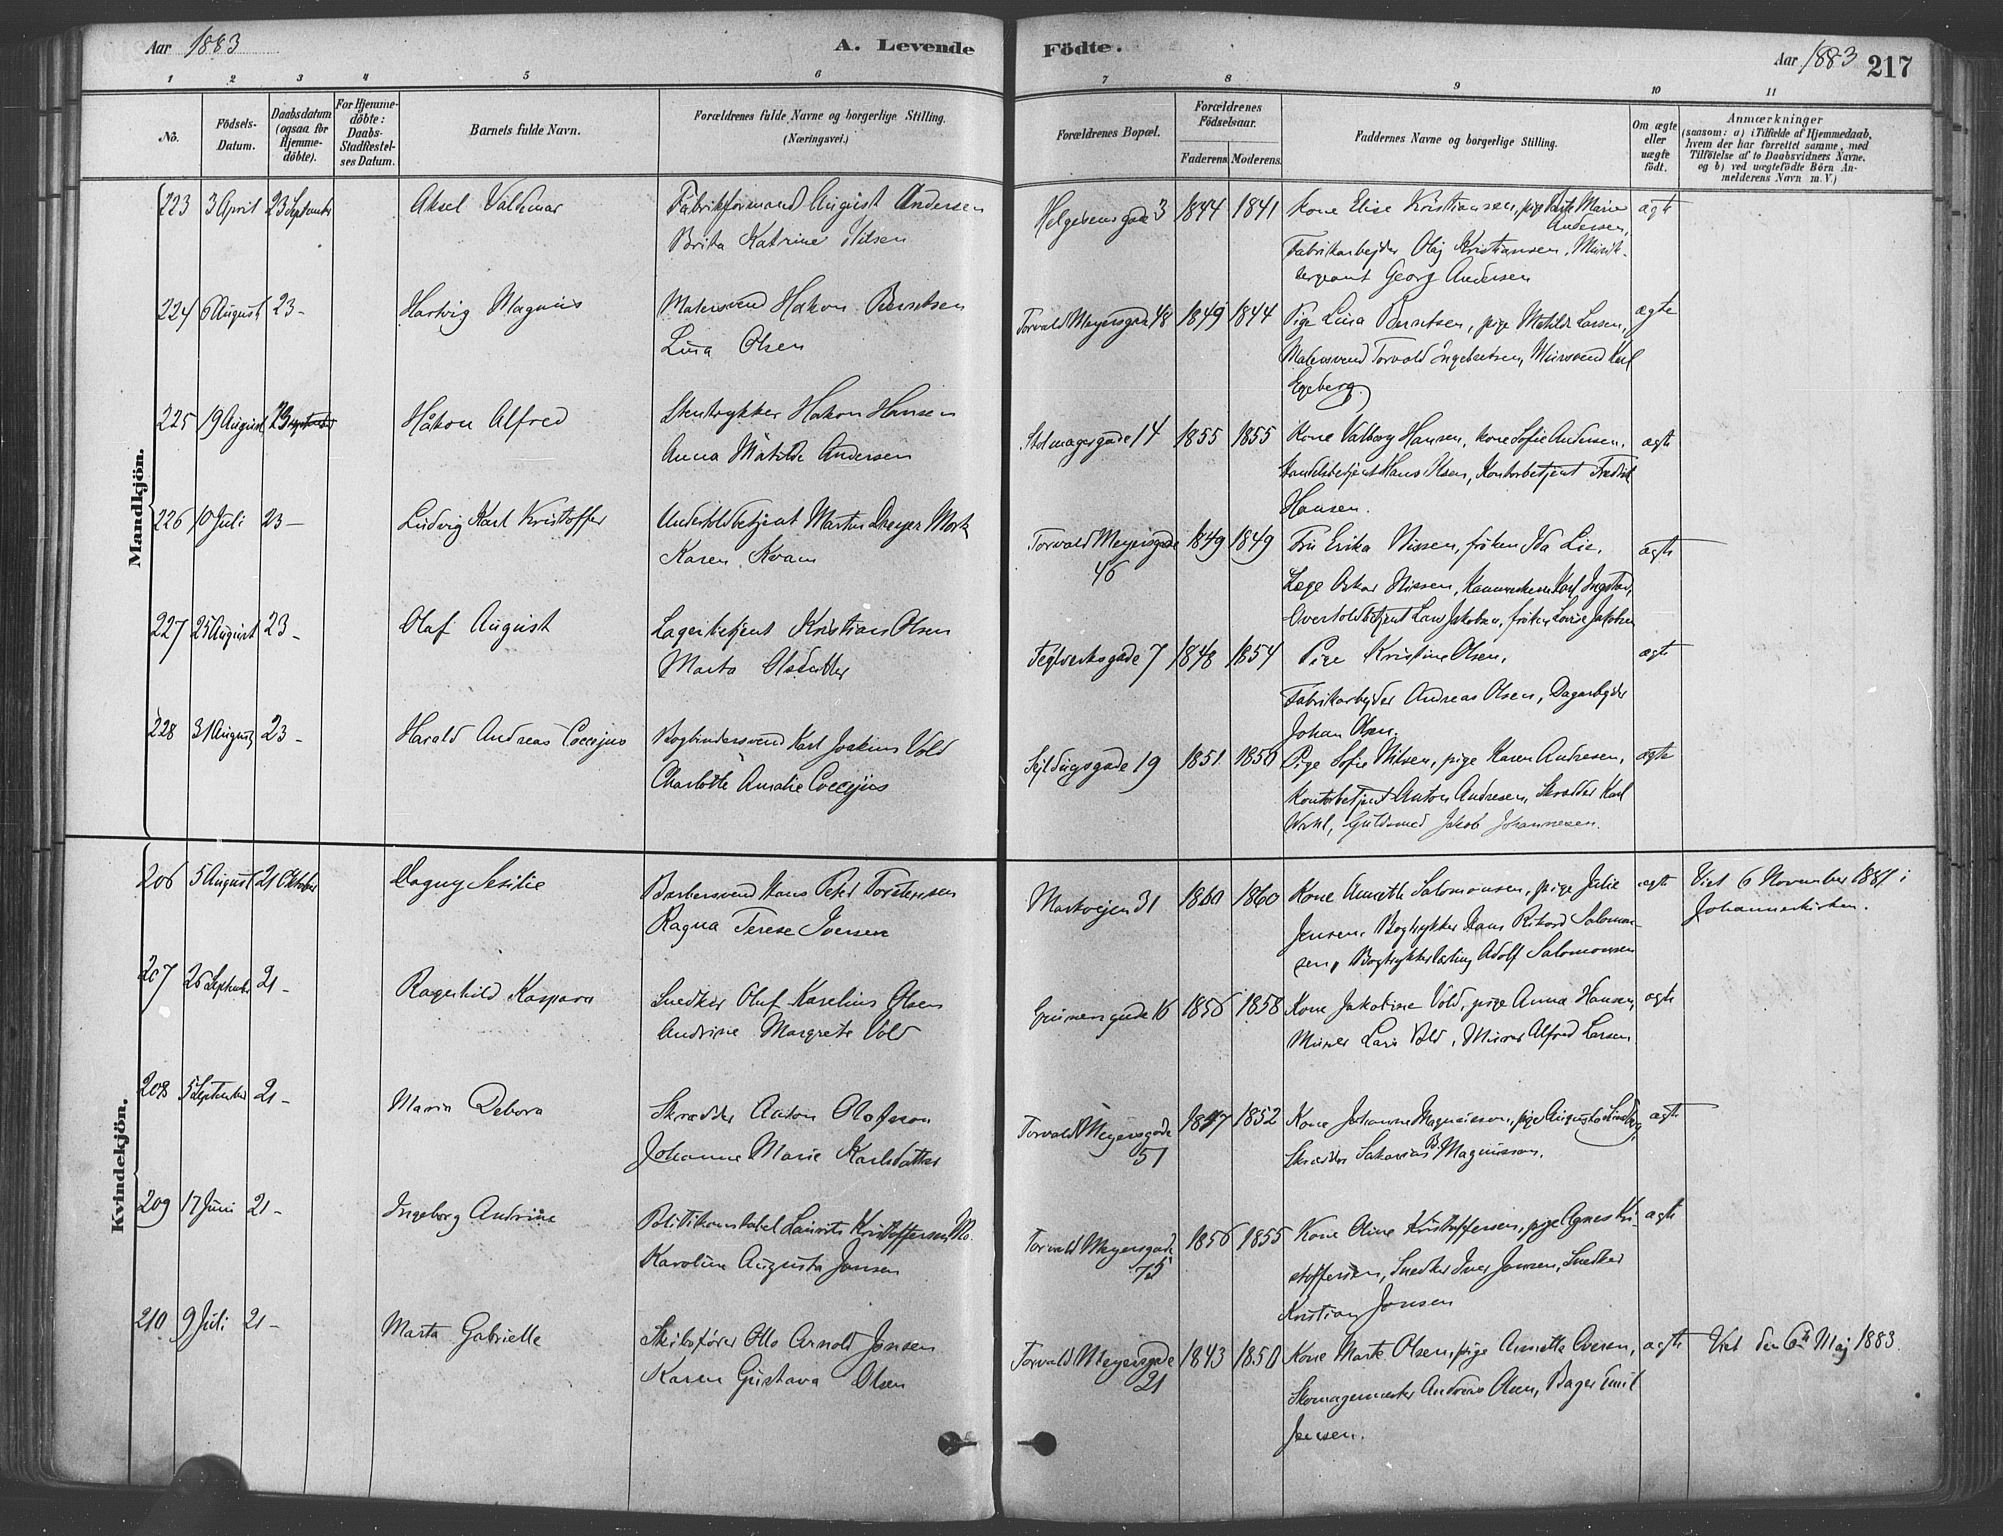 Aar 1883
A. Levende
Födte.
Aar 1883
217
1 2 3 4 5 6 7 8 9 10 11
No.
Födsels-
Datum.
Daabsdatum
(ogsaa for
Hjemme-
döbte).
For Hjemme-
döbte:
Daabs-
Stadfestel-
ses Datum.
Barnets fulde Navn.
Forældrenes fulde Navne og borgerlige Stilling.
(Næringsvei.)
Forældrenes Bopæl.
Forældrenes
Födselsaar.
Faderens. Moderens.
Faddernes Navne og borgerlige Stilling.
Om ægte
eller
uægte
født.
Anmærkninger
(saasom: a) i Tilfælde af Hjemmedaab,
hvem der har forrettet samme, med
Tilföielse af to Daabsvidners Navne.
og b) ved uægtefödte Börn An-
melderens Navn m.V.)
Mandkjön.
223 3 April 23 September Aksel Valdemar Fabrikformand August Andersen Helgesensgade 3 1844 1841 Kone Elise Kristiansen, pige Marie ægte
Andersen,
Brita Katrine Nilsen Fabrikarbejder Olaj Kristiansen, Musik-
sergeant Georg Andersen
224 6 August 23 - Hartvig Magnus Malersvend Hakon Berntsen Torvald Meyersgade 48 1849 1844 Pige Lina Berntsen, pige Matilde Larsen, ægte
Lina Olsen Malersvend Torvald Ingebretsen, Mursvend Karl
Egeberg.
225 19 August 23 September Håkon Alfred Stentrykker Hakon Hansen Stolmagergade 14 1855 1855 Kone Valborg Hansen, kone Sofie Andersen, ægte
Anna Matilde Andersen Handelsbetjent Hans Olsen, Kontorbetjent Fredrik
Hansen.
226 10 Juli 23 - Ludvig Karl Kristoffer Undertoldbetjent Martin Dreyer Mork Torvald Meyersgade 1849 1849 Fru Erika Nissen, fröken Ida Lie, ægte
46
Karen Kvam Læge Oskar Nissen, Karl Ingstad,
Overtoldbetjent Lars Jakobsen, fröken Lovise Jakobsen
227 25 August 23 - Olaf August Lagerbetjent Kristian Olsen Teglverksgade 7 1848 1854 Pige Kristine Olsen, ægte
Marta Olsdatter Fabrikarbejder Andreas Olsen, Dagarbejder
Johan Olsen.
228 31 August 23 - Harald Andreas Coccejus Bogbindersvend Karl Joakim Vold Seildugsgade 19 1851 1850 Pige Sofie Nilsen, pige Karen Andresen, ægte
Charlotte Amalie Coccejus Kontorbetjent Anton Andresen, Skrædder Karl
Guldsmed Jakob Johannesen.
Kvindekjön.
206 5 August 21 Oktober Dagny Sesilie Barbersvend Hans Petet Torstensen Markvejen 31 1860 1860 Kone Annette Salomonsen, pige Julie ægte Viet 6 November 1881 i
Ragna Terese Iversen Jensen, Bogtrykker Hans Rikard Salomon- Johanneskirken.
sen, Bogtrykkerlærling Adolf Salomonsen
207 26 September 21 - Ragnhild Kaspara Snedker Oluf Karelius Olsen Grünersgade 16 1856 1858 Kone Jakobine Vold, pige Anna Hansen, ægte
Andrine Margrete Vold Murer Lars Vold, Murer Alfred Larsen
208 5 September 21 - Maria Debora Skrædder Anton Olofsson Torvald Meyersgade 1847 1852 Kone Johanne Magnusson, pige Augusta Lindberg, ægte
51
Johanne Marie Karlsdatter Skrædder Sakarias B. Magnusson.
209 17 Juni 21 - Ingeborg Andrine Politikonstabel Lauritz Kristoffersen Mo Torvald Meyersgade 1856 1855 Kone Oline Kristoffersen, pige Agnes Kri- ægte
75
Karoline Augusta Jonsen stoffersen, Snedker Iver Jonsen, Snedker
Kristian Jonsen
210 9 Juli 21 - Marta Gabrielle Skibsfører Otto Arnold Jensen Torvald Meyersgade 1843 1850 Kone Marte Olsen, pige Annette Evensen, ægte Viet den 6te Maj 1883.
21
Karen Gustava Olsen Skomagermester Andreas Olsen, Bager Emil
Jensen.